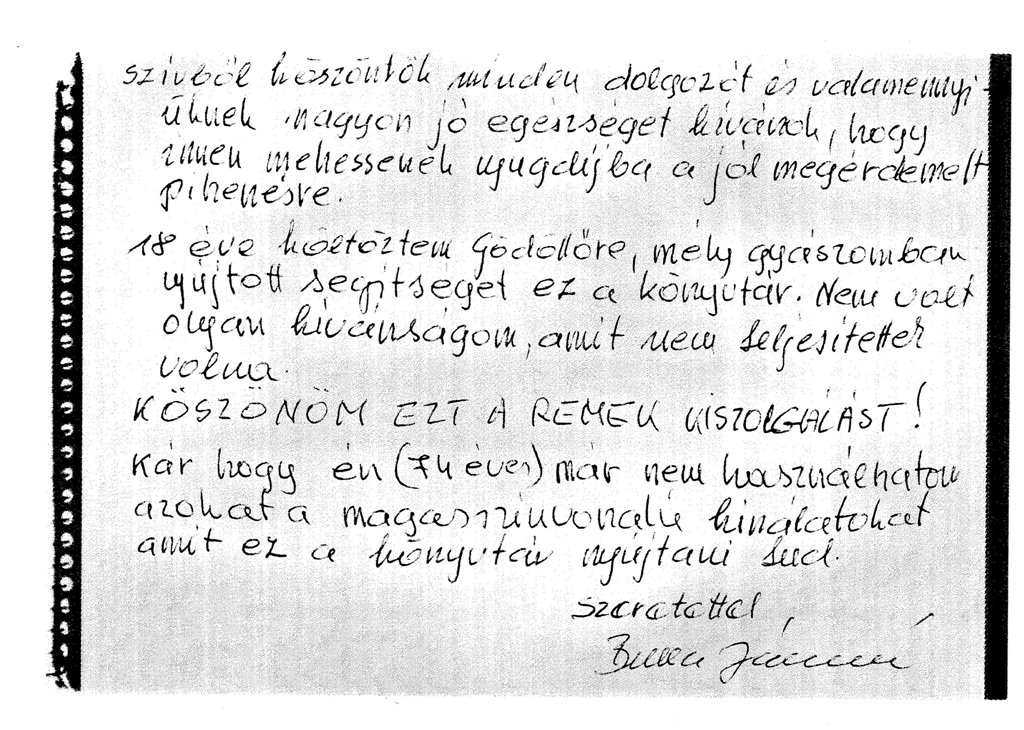 szívből köszöntök minden dolgozót és valamennyi-
üknek nagyon jó egészséget kívánok, hogy
innen mehessenek nyugdíjba a jól megérdemelt
pihenésre.
18 éve költöztem Gödöllőre, mély gyászomban
nyújtott segítséget ez a könyvtár. Nem volt
olyan kívánságom, amit nem teljesítettek
volna.
KÖSZÖNÖM EZT A REMEK KISZOLGÁLÁST!
Kár hogy én (74 éves) már nem használhatom
azokat a magasszínvonalú kínálatokat
amit ez a könyvtár nyújtani tud.
Szeretettel,